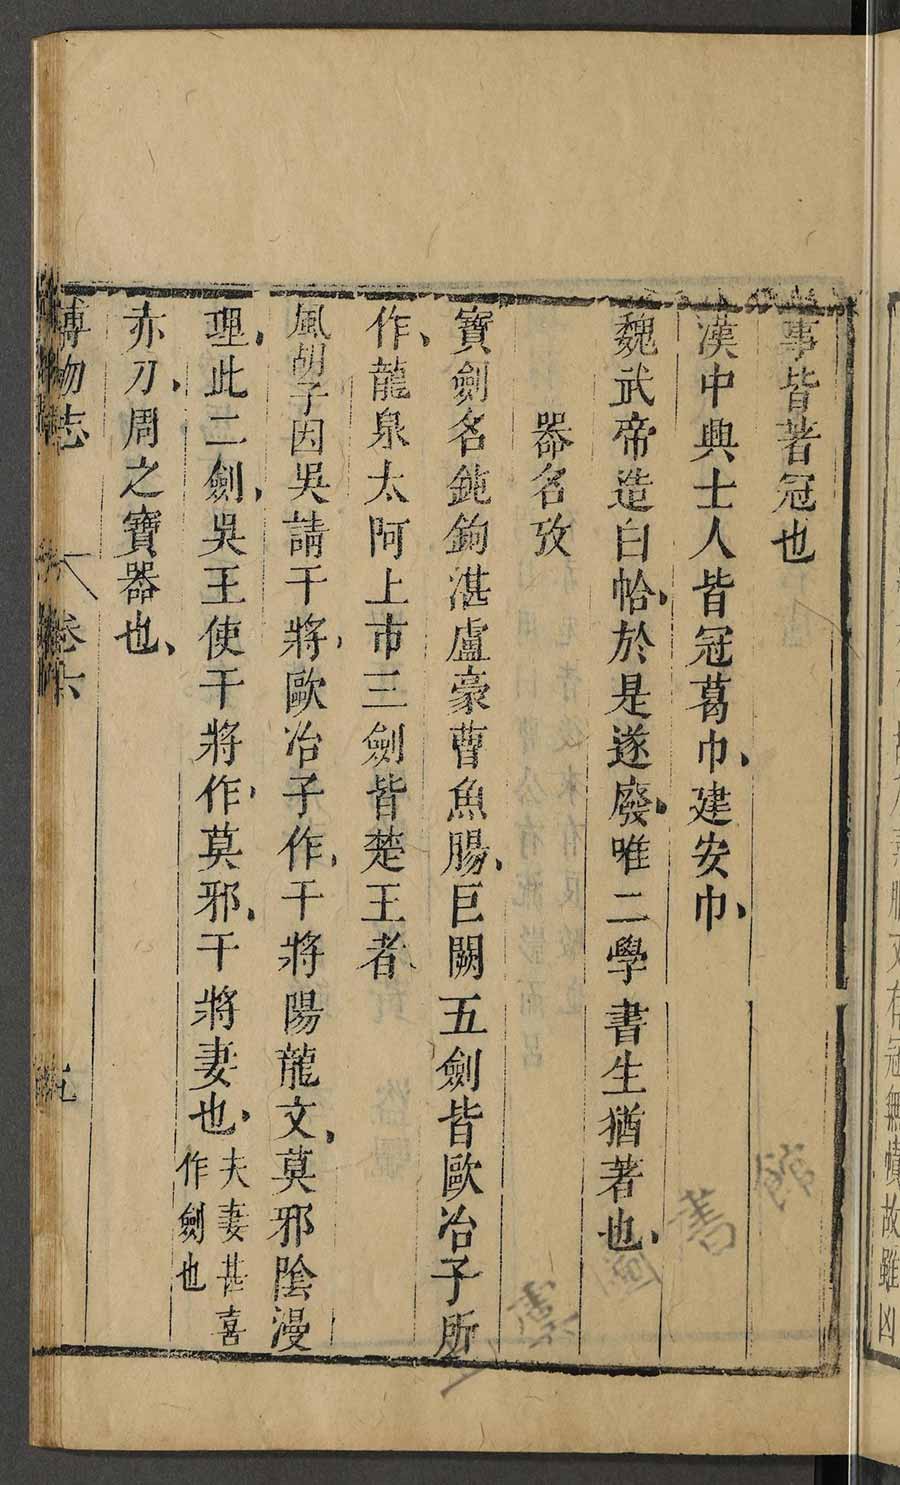 事皆著冠也
漢中興士人皆冠葛巾建安巾
魏武帝造白帢於是遂廢唯二學書生猶著也
器名攷
寶劍名鈍鉤湛盧豪曹魚腸巨闕五劍皆歐冶子所
作龍泉太阿上市三劍皆楚王者
風胡子因吳請干將歐冶子作干將陽龍文莫邪陰漫
理此二劍吳王使干將作莫邪干將妻也夫妻甚喜
作劍也
赤刀周之寶器也
博物志 卷六 九